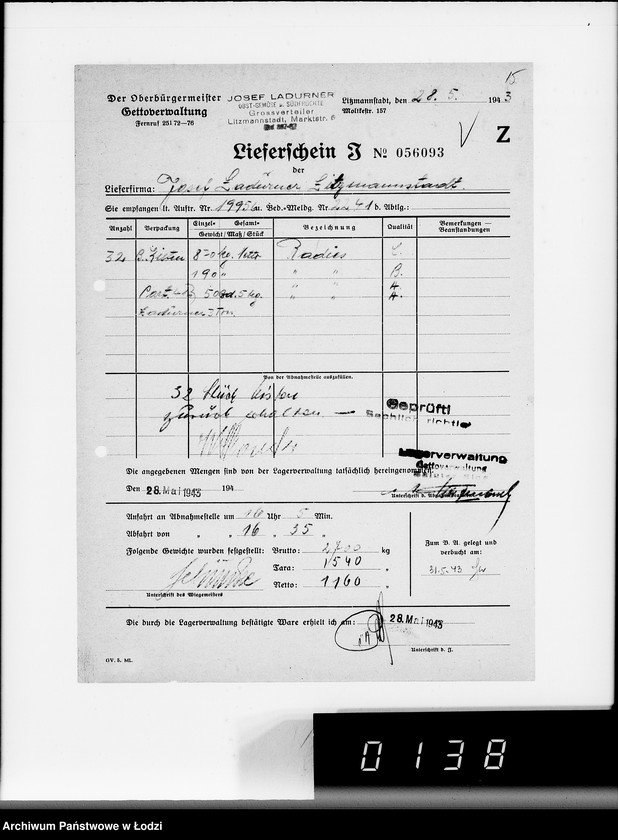 15
Der Oberbürgermeister
Gettoverwaltung
Fernruf 251 72—76
JOSEF LADURNER
OBST-GEMÜSE u. SÜDFRÜCHTE
Grossverteiler
Litzmannstadt, Marktstr. 6
Litzmannstadt, den 28. 5. 1943
Moltkestr. 157
Z
Lieferschein J № 056093
der
Lieferfirma: Josef Ladurner Litzmannstadt.
Sie empfangen lt. Auftr. Nr. u. Bed.-Meldg. Nr. b. Abtlg.:
Anzahl Verpackung Einzel- Gesamt- Gewicht/Maß/Stück Bezeichnung Qualität Bemerkungen — Beanstandungen
32 Kisten kg. Netto Radies C.
190 " " " B.
" " A.
A.
Ladurner
Von der Abnahmestelle auszufüllen.
32 Stück Kisten
zurück erhalten —
Geprüft!
Sachlich richtig
Lagerverwaltung
Gettoverwaltung
Die angegebenen Mengen sind von der Lagerverwaltung tatsächlich hereingenommen.
Den 28. Mai 1943 194
Unterschrift d.
Anfahrt an Abnahmestelle um 16 Uhr 5 Min.
Abfahrt von „ „ 16 „ 35 „
Folgende Gewichte wurden festgestellt: Brutto: 2700 kg
Tara: 1540 „
Netto: 1160 „
Unterschrift des Wiegemeisters
Zum B. A. gelegt und
verbucht am:
31.5.43
Die durch die Lagerverwaltung bestätigte Ware erhielt ich am: 28. Mai 1943
Unterschrift d. J.
GV. S. MI.
0138
Archiwum Państwowe w Łodzi